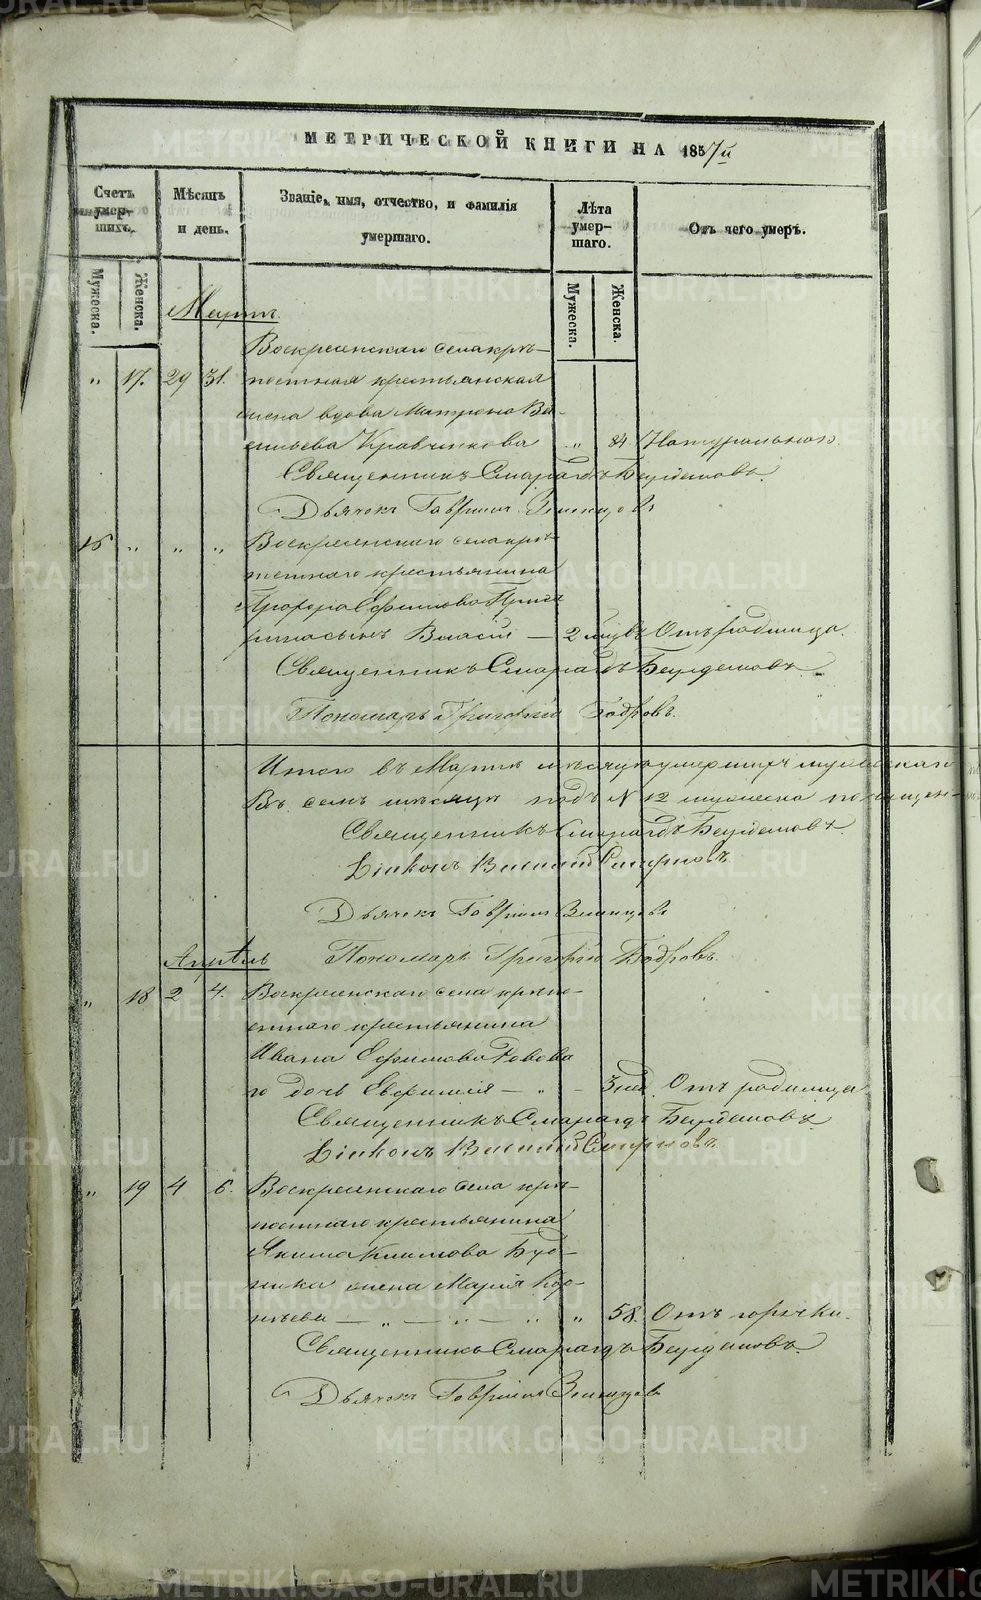 МЕТРИЧЕСКОЙ КНИГИ НА 1857й
Счетъ умер-шихъ.
Мѣсяцъ и день.
Званіе, имя, отчество, и фамилія умершаго.
Лѣта умер-шаго.
Отъ чего умеръ.
Мужеска.
Женска.
Мужеска.
Женска.
Мартъ.
Воскресенскаго села крѣ-
" 17. 29 31. постная крестьянская
жена вдова Матрона Ва-
сильева Кравченкова " 84 Натурально.
Священникъ Смарагдъ
Дьячокъ Гавріилъ
15 " " " Воскресенскаго села крѣ-
постнаго крестьянина
Прохора Ефимова
сынъ Власій — 2 Отъ родимца.
Священникъ Смарагдъ
Пономарь Григорій Бодровъ.
Итого въ Мартѣ мѣсяцѣ умершихъ мужескаго
Въ семъ мѣсяцѣ подъ N 12 мужеска
Священникъ Смарагдъ
Діаконъ Василій Смирновъ.
Дьячокъ Гавріилъ
Пономарь Григорій Бодровъ.
Апрѣль
" 18 2 4. Воскресенскаго села крѣпо-
стнаго крестьянина
Ивана Ефимова
го дочь Евфимія — " — Отъ родимца
Священникъ Смарагдъ
Діаконъ Василій Смирновъ.
" 19 4 6. Воскресенскаго села крѣ-
постнаго крестьянина
Якима Климова Буд-
ника жена Марія Кор-
нѣева — " — " — " " 58. Отъ горячки.
Священникъ Смарагдъ
Дьячокъ Гавріилъ
METRIKI.GASO-URAL.RU